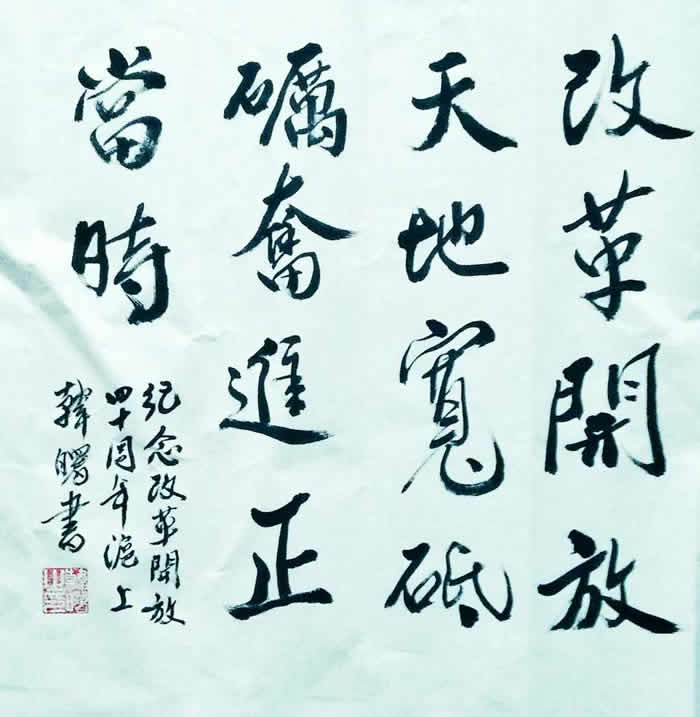 改革開放
天地寬砥
礪奮進正
當時
紀念改革開放
四十周年滬上
韓曙書